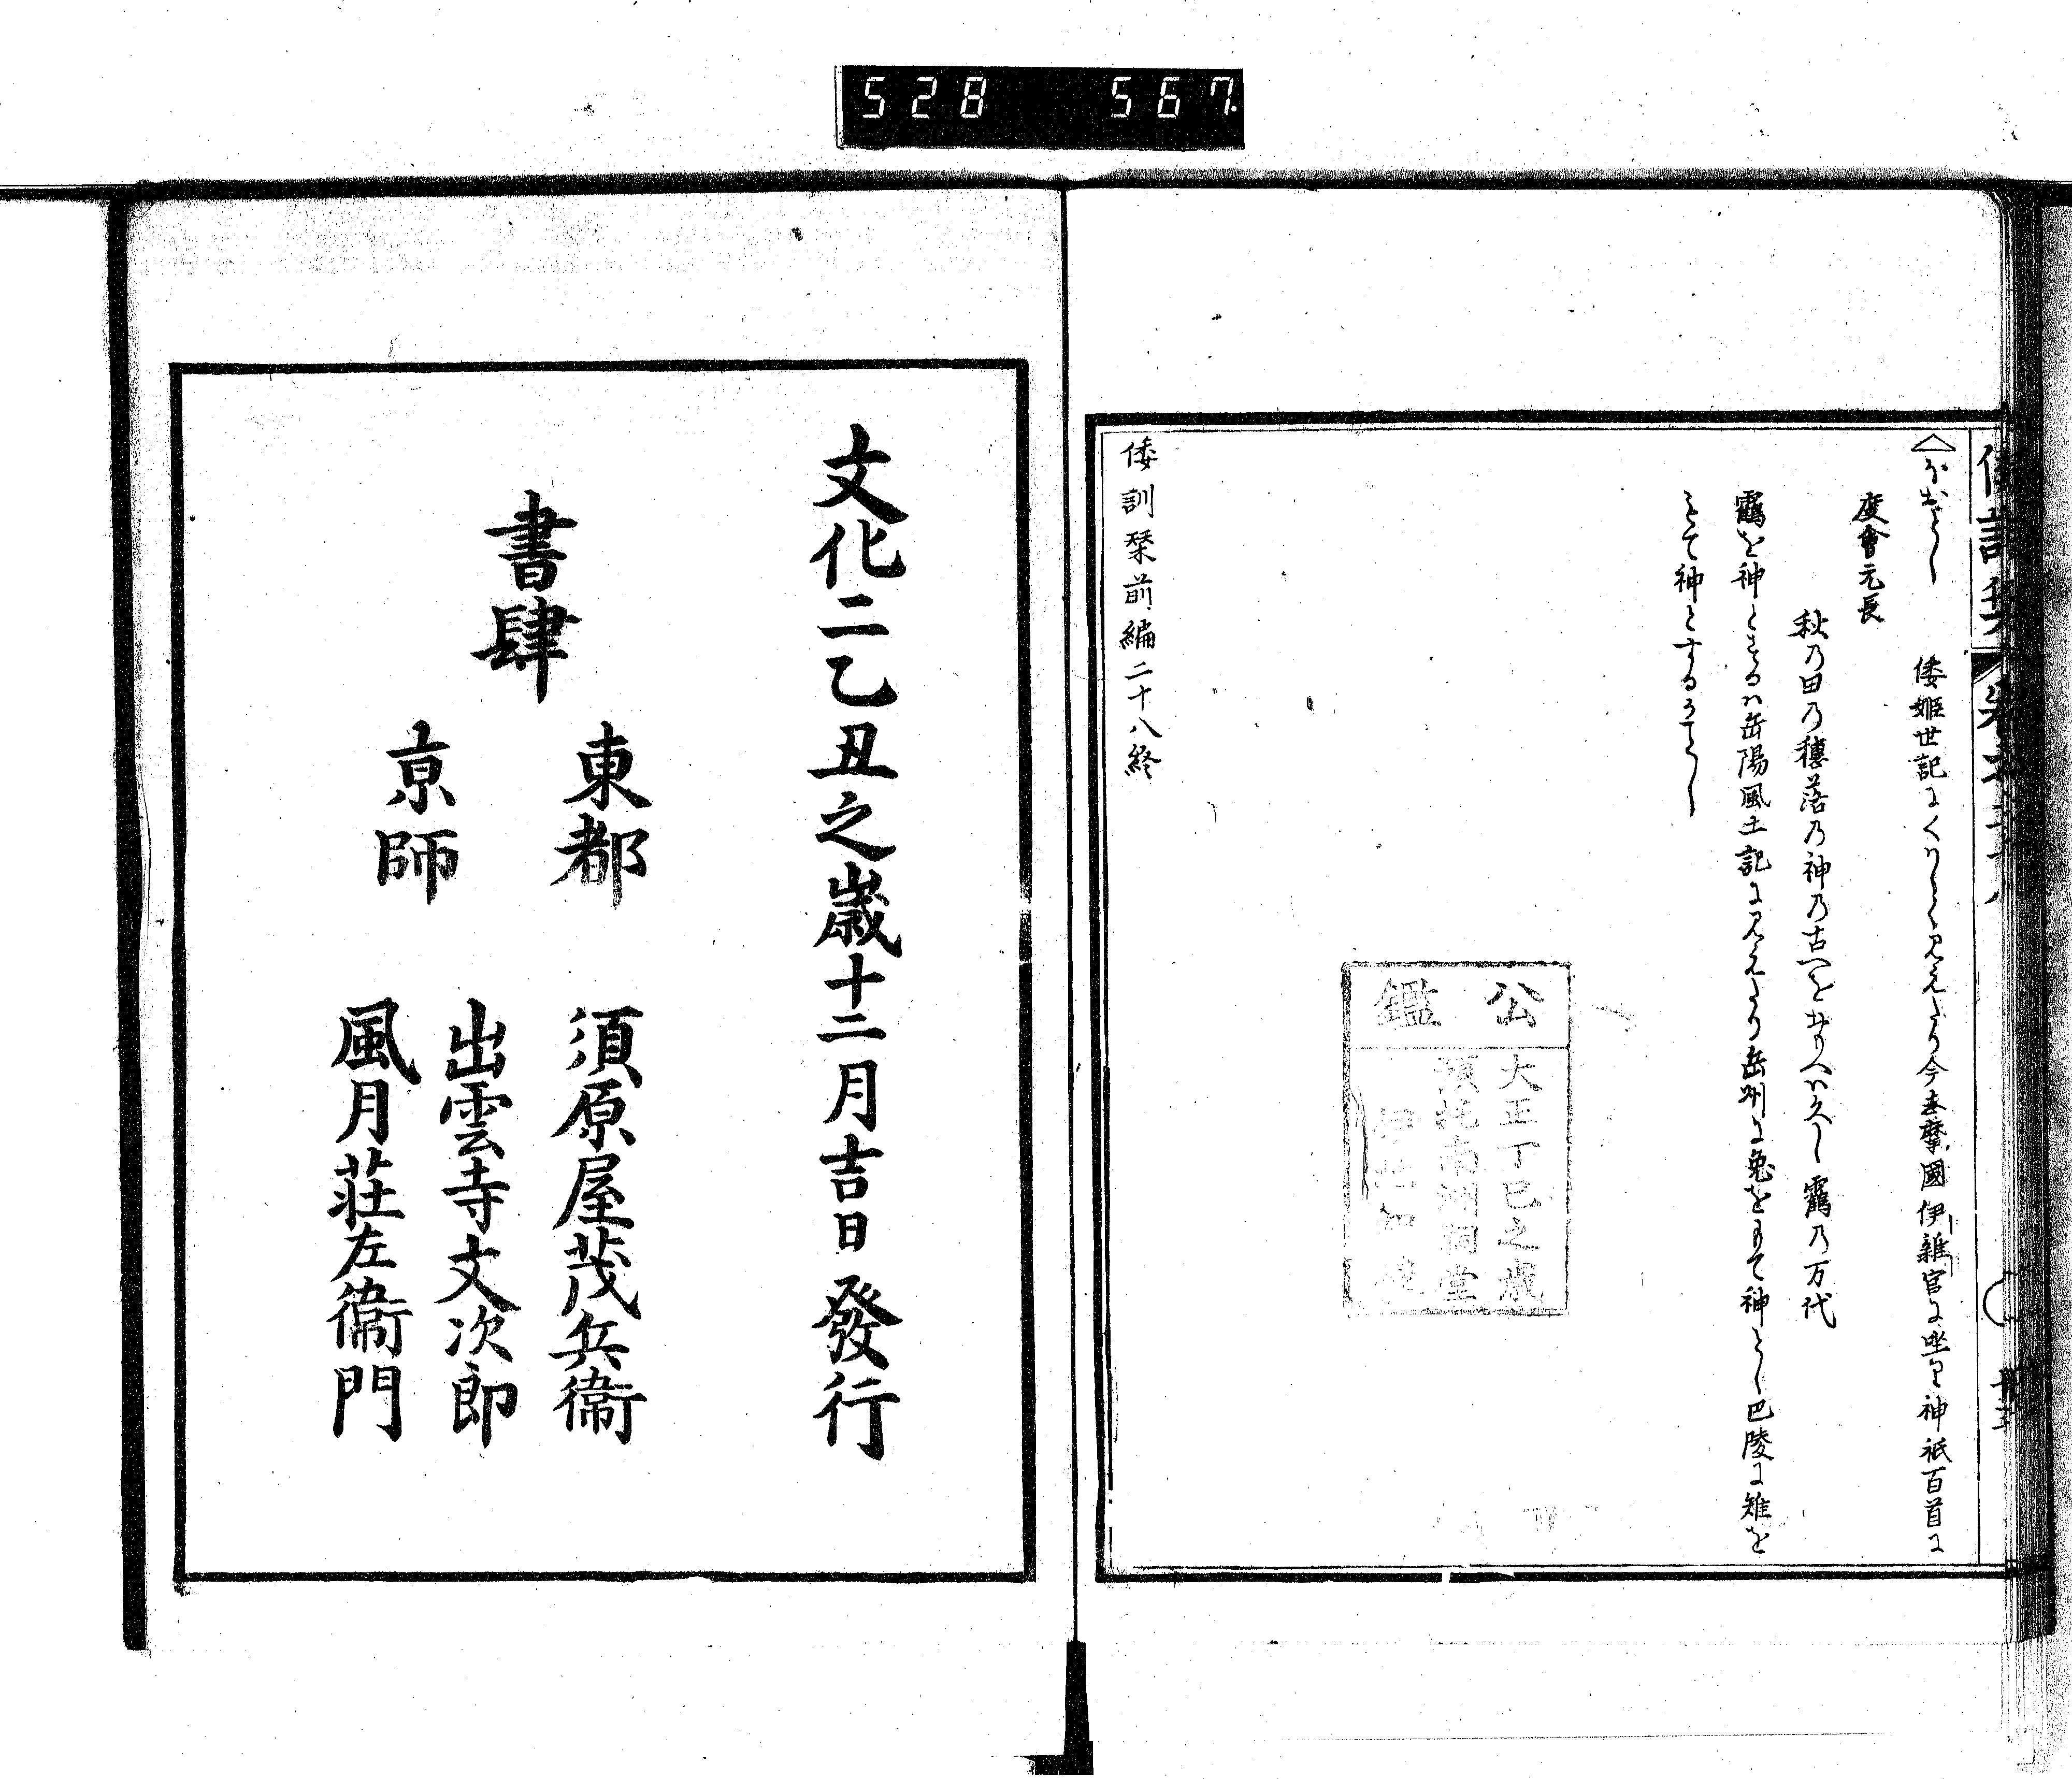 528 567
倭姫世記にくはしく見えたり今志摩國伊雜宮に坐り神祇百首に
度會元長
秋乃田乃穗落乃神乃古へをおもへハ久し靏乃万代
靏を神とするハ岳陽風土記に見えたり岳州に兔をもて神とし巴陵に雉を
もて神とするかことし
倭訓栞前編二十八終
公鑑
大正丁巳之歳
預託南洲祠堂
文化二乙丑之歳十二月吉日發行
書肆
東都
須原屋茂兵衞
京師
出雲寺文次郎
風月莊左衞門